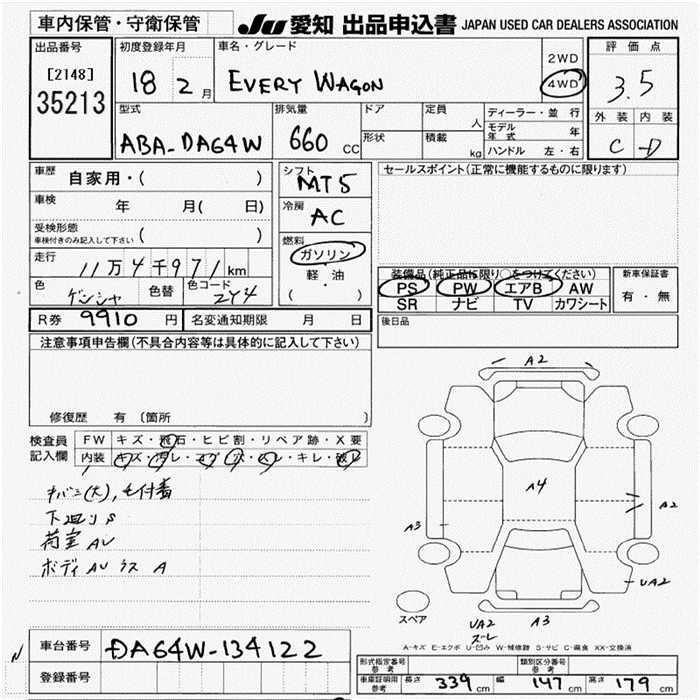 車内保管・守衛保管 JU 愛知 出品申込書 JAPAN USED CAR DEALERS ASSOCIATION
出品番号 初度登録年月 車名・グレード 2WD 評価点
[2148] 18 2月 EVERY WAGON 4WD 3.5
35213
型式 排気量 ドア 定員 人 ディーラー・並行 外装 内装
ABA-DA64W 660 CC 形状 積載 kg モデル年式 年 C D
ハンドル 左・右
車歴 自家用・( ) シフト MT5 セールスポイント(正常に機能するものに限ります)
車検 年 月( 日) 冷房 AC
受検形態
車検付きのみ記入して下さい ( )
燃料 ガソリン
走行 11万4千971km 軽・油
( ・ )
装備品(純正品に限り○をつけてください) 新車保証書
色 ゲンシャ 色替 色コード 2Y4 PS PW エアB AW 有・無
SR ナビ TV カワシート
R券 9910 円 名変通知期限 月 日 後日品
注意事項申告欄(不具合内容等は具体的に記入して下さい)
修復歴 有 〔箇所 〕
検査員記入欄 FW キズ・飛石・ヒビ割・リペア跡・X要
内装 キズ・汚レ・コゲ・穴・スレ・キレ・破レ
下回りS
荷室AU
ボディAUウスA
A2
A4
A3
A2
UA2
スペア
UA2
A3
A-キズ E-エクボ U-凹み W-補修跡 S-サビ C-腐食 XX-交換済
N 車台番号 DA64W-134122
登録番号
形式指定番号 参考 類別区分番号 参考
車庫証明用 参考 長さ 339 cm 幅 147 cm 高さ 179 cm